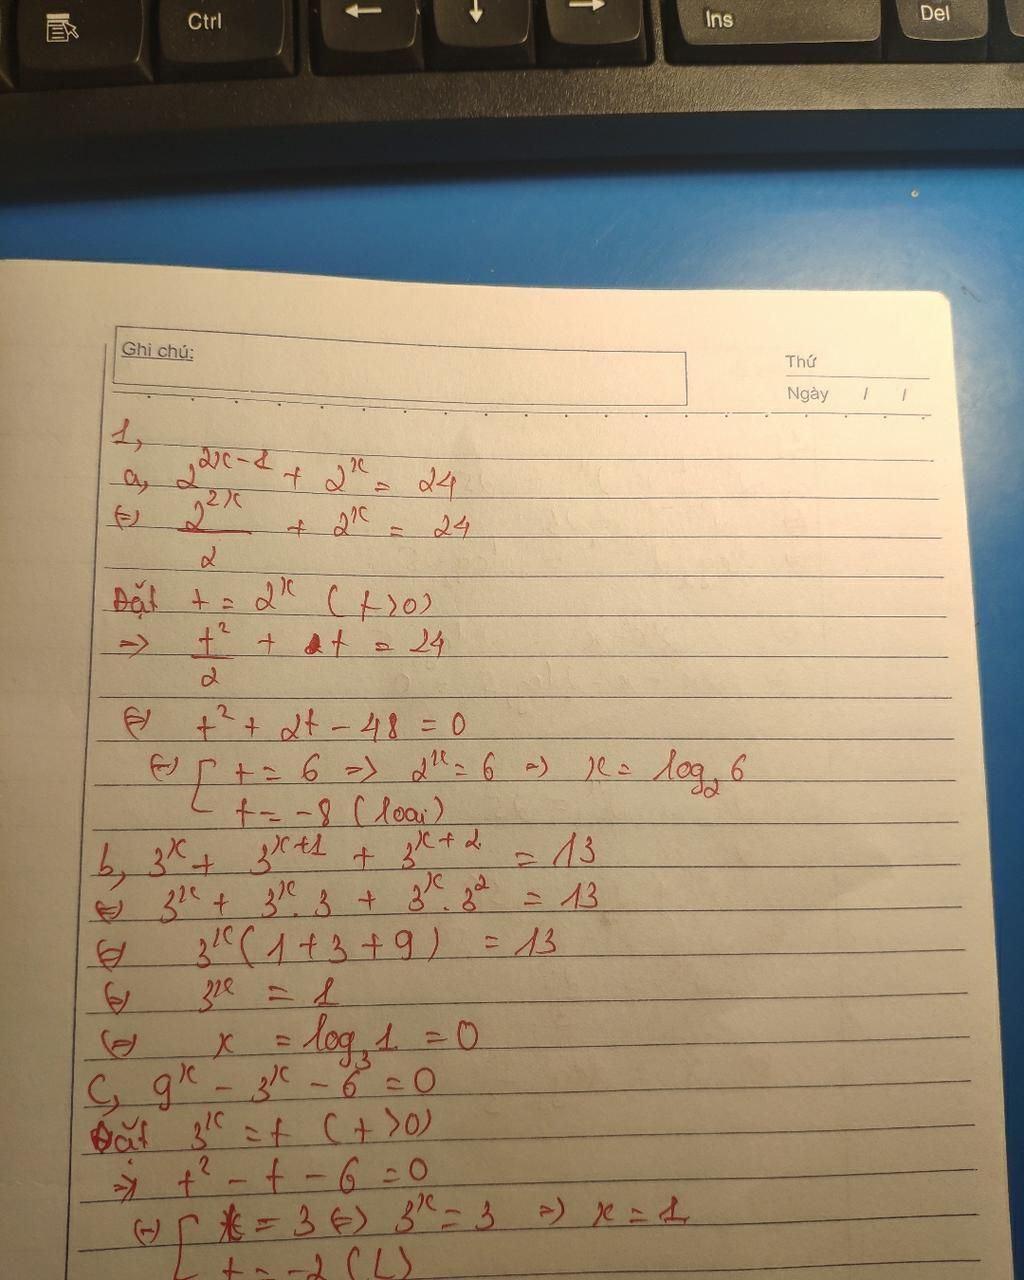 Ctrl ← ↓ → Ins Del
Ghi chú:
Thứ
Ngày / /
1,
a, 2^{2x-1} + 2^x = 24
(=) 2^{2x}/2 + 2^x = 24
Đặt t = 2^x (t>0)
=> t²/2 + t = 24
(=) t² + 2t - 48 = 0
(=) [ t = 6 => 2^x = 6 => x = log₂ 6
t = -8 (loại)
b, 3^x + 3^{x+1} + 3^{x+2} = 13
(=) 3^x + 3^x . 3 + 3^x . 3² = 13
(=) 3^x (1 + 3 + 9) = 13
(=) 3^x = 1
(=) x = log₃ 1 = 0
C, 9^x - 3^x - 6 = 0
Đặt 3^x = t (t>0)
=> t² - t - 6 = 0
(=) [ t = 3 (=) 3^x = 3 => x = 1
t = -2 (L)